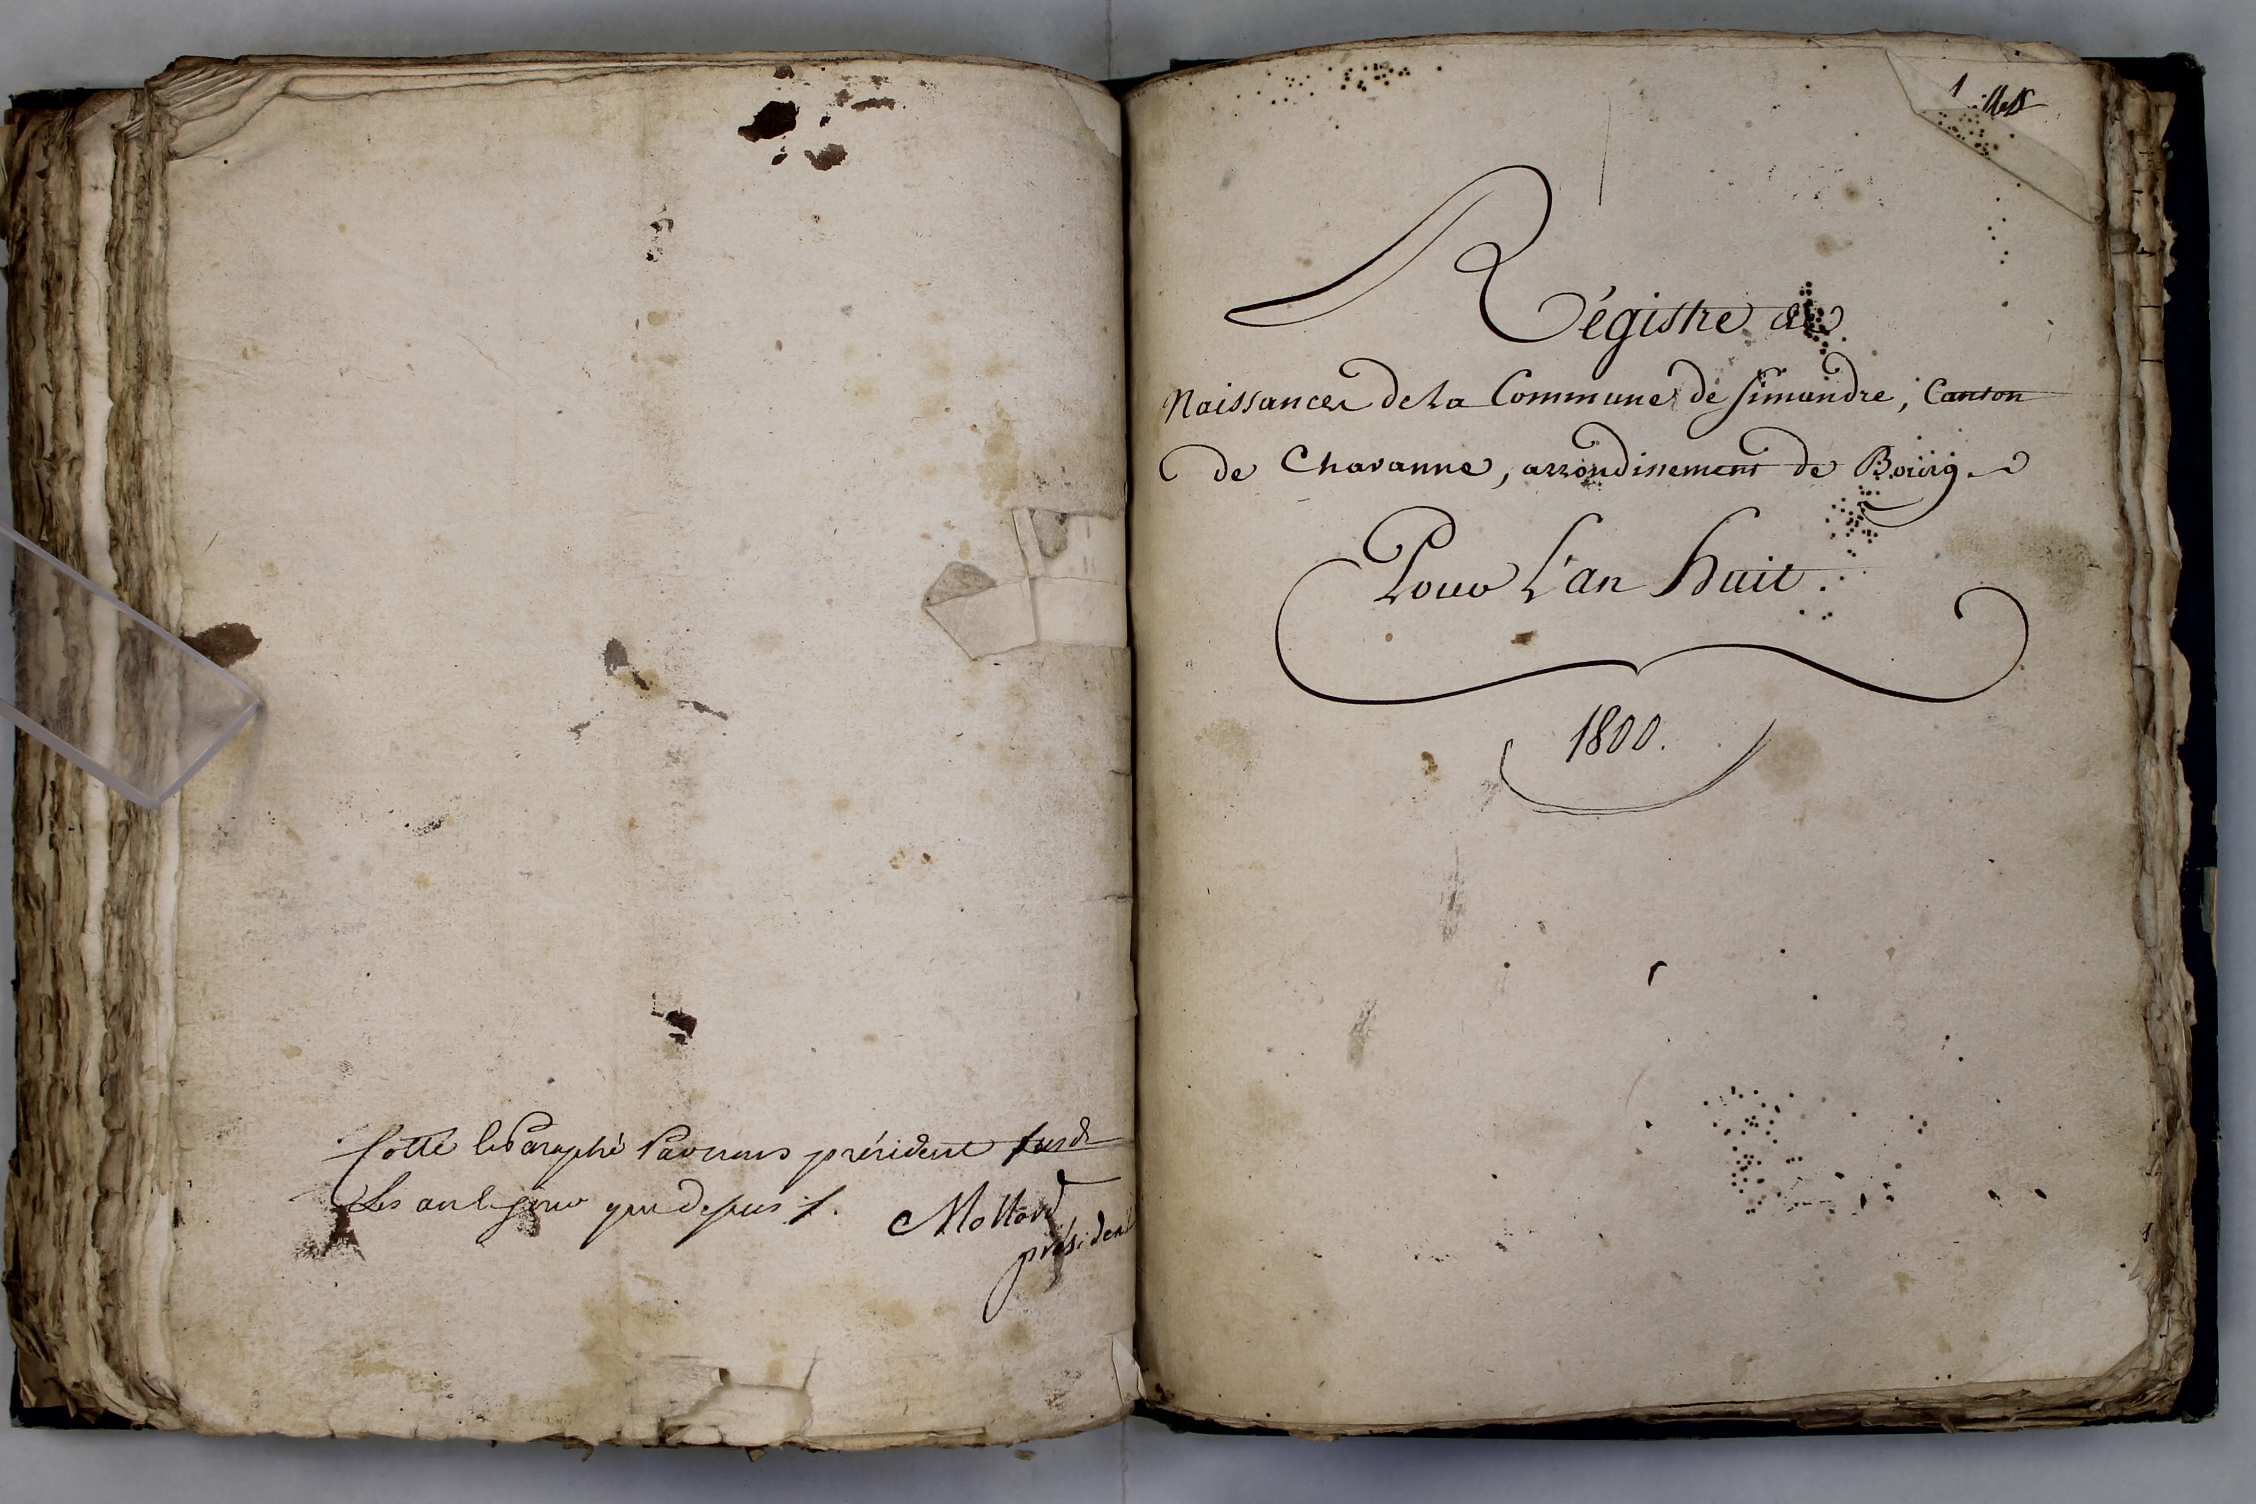 Cotté et Paraphé Par nous président sus d.
Les an et jour que dessus
Mottard
président
1
Régistre de
Naissances de la Commune de Simandre, Canton
de Chavanne, arrondissement de Bourg.
Pour L'an huit.
1800.